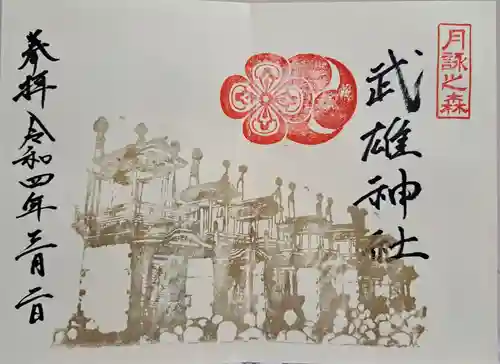 月詠之森
武雄神社
奉拝 令和四年三月二日